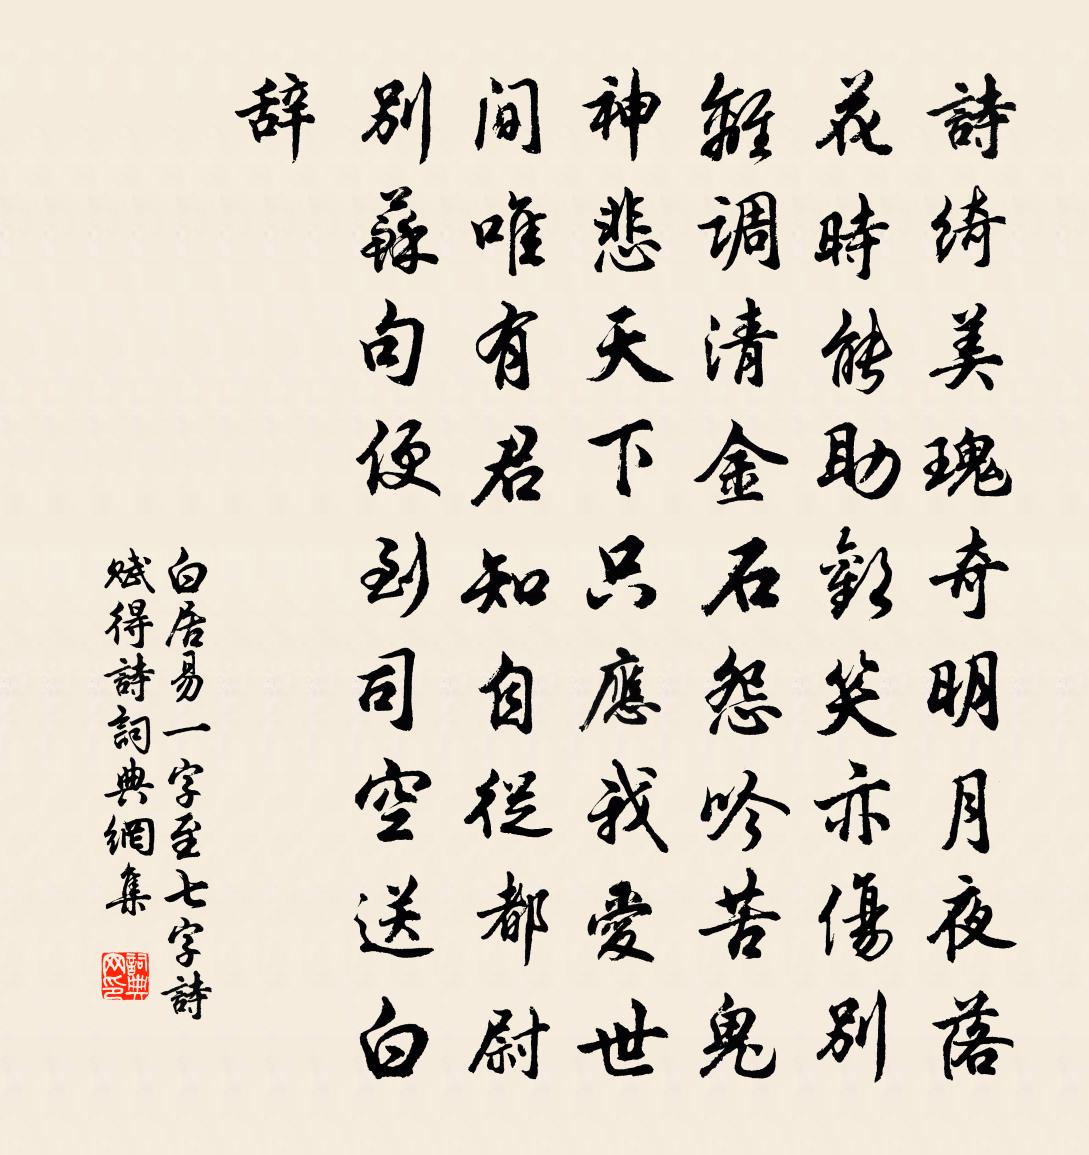 詩綺美瑰奇明月夜落
花時能助歡笑亦傷別
離調清金石怨吟苦鬼
神悲天下只應我愛世
间唯有君知自從都尉
別蘇句便到司空送白
辞
白居易一字至七字詩
赋得詩詞典網集
詞典
网印